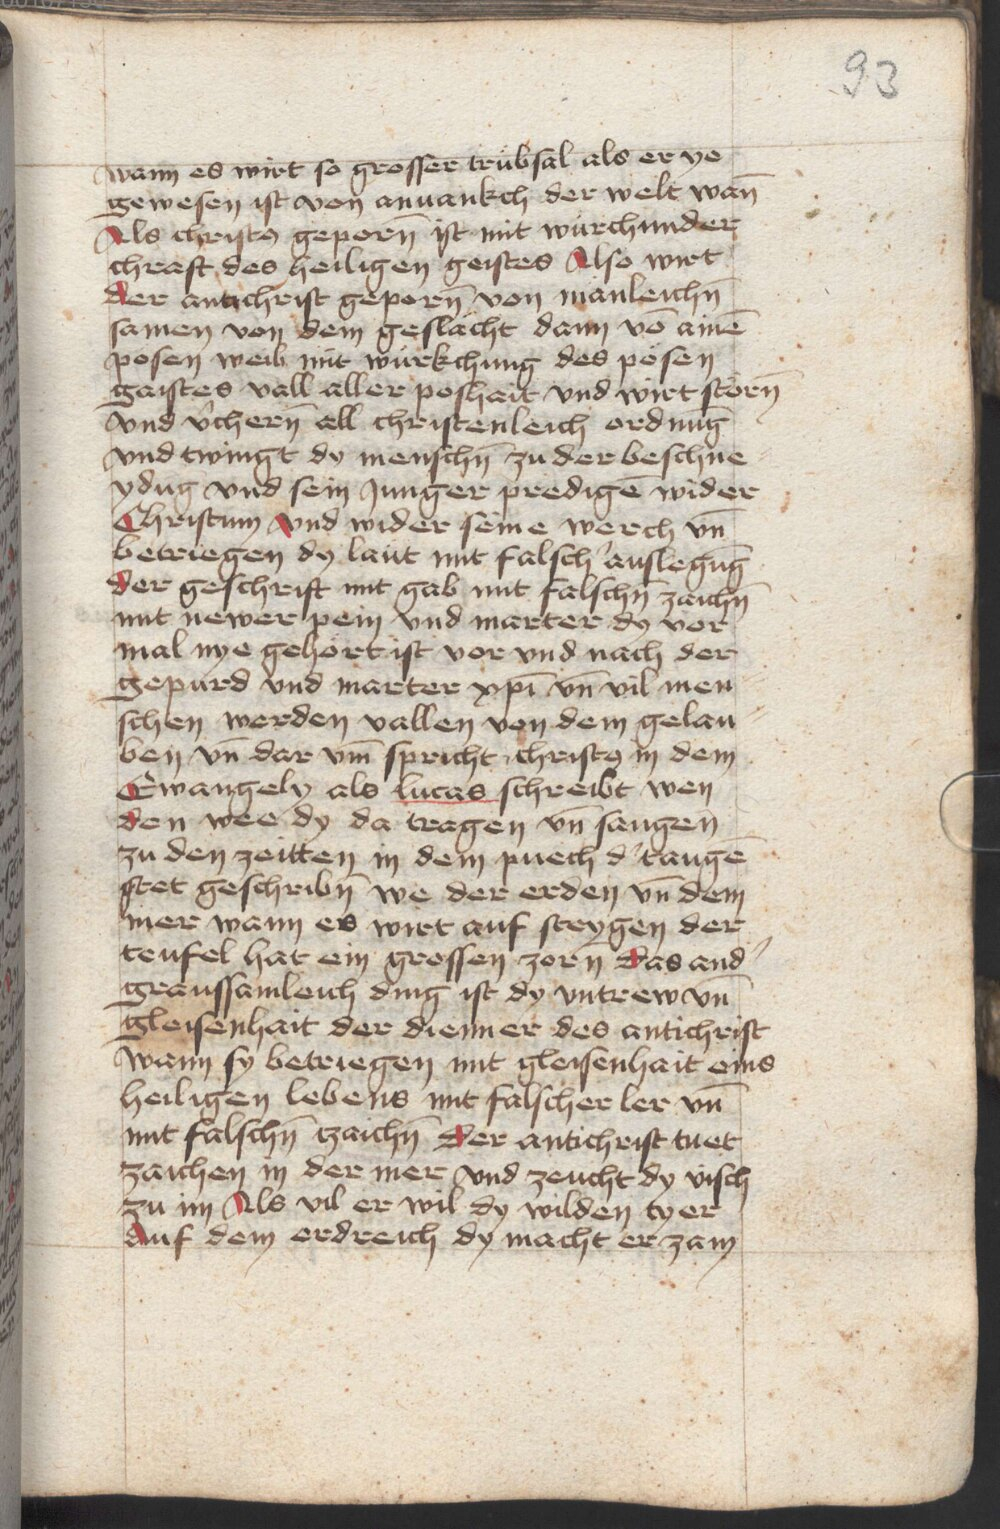 93
wann es wirt so grosser trübsal als er ye
gewesen ist von anuankch der welt wan̄
Als christꝯ geporn̄ ist mit würchunder
chraft des heiligen geistes Also wirt
der antichrist geporn̄ von manleichn̄
samen von dem geslächt dann vō ainē
posen weib mit würkchung des pösen
gaistes vall aller poshait vnd wirt störn̄
vnd v̾chern̄ all christenleich ordnūg
vnd twingt dy menschn̄ zu der beschne
ydūg vnd sein Junger predigē wider
Christum vnd wider seine werch vn̄
betriegen dy läut mit falsch' auslegūg
der geschrift mit gab mit falschn̄ zaichn̄
mit newer pein vnd marter dy vor
mal nye gehört ist vor vnd nach der
gepurd vnd marter xp̄i vn̄ vil men
schen werden vallen von dem gelau
ben vn̄ dar vm̄ spricht christꝯ in dem
Ewangely als lucas schreibt wen
den wee dy da tragen vn̄ saugen
zu den zeitten in dem puech d' taugē
stet geschribn̄ we der erden vn̄ dem
mer wann es wirt auf steygen der
teufel hat ein grossen zorn das and'
graussamleich ding ist dy vntrew vn̄
gleisenhait der dienner des antichrist
wann sy betriegen mit gleisenhait eins
heiligen lebens mit falscher ler vn̄
mit falschn̄ tzaichn̄ Der antichrist tuet
zaichen in der mer vnd zeucht dy visch
zu im Als vil er wil dy wilden tyer
Auf dem erdreich dy macht er zam